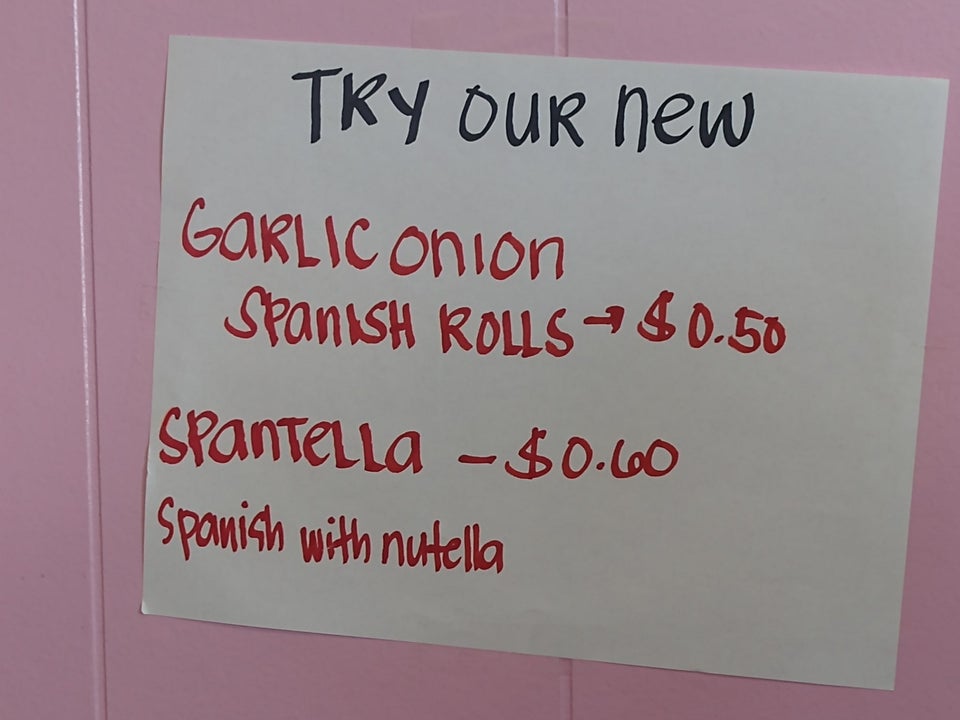 TRY OUR new
GARLIC ONION
SPANISH ROLLS → $0.50
SPANTELLA - $0.60
Spanish with nutella